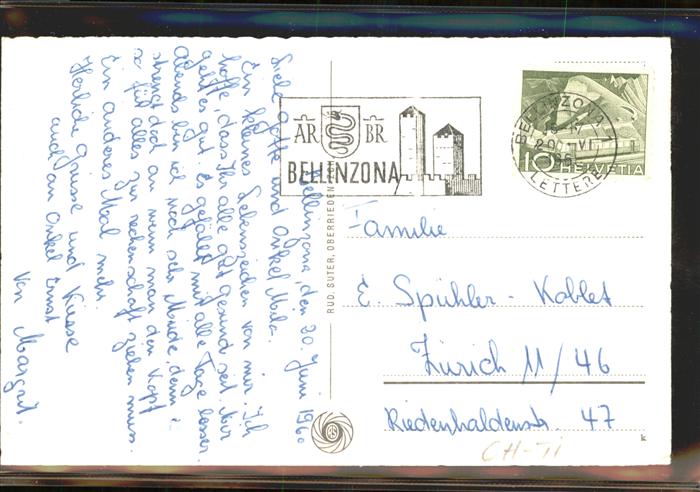 Bellinzona, den 20. Juni 1960
Liebe Gotte und Onkel Max.
Ein kleines Lebenszeichen von mir. Ich
hoffe dass Ihr alle gut gesund seit. Mir
geht es gut. Es gefällt mir alle Tage besser.
Abends bin ich noch sehr Müde, denn es
strengt doch an wenn man den Kopf
so für alles zur rechenschaft ziehen muss.
Ein anderes Mal mehr.
Herliche Grüsse und Küsse
auch an Onkel Ernst
Von Margrit.
AR BR
BELLINZONA
BELLINZONA 1
LETTERE
10 HELVETIA
RUD. SUTER, OBERRIEDEN
Familie
E. Spühler - Koblet
Zürich 11/46
Riedenhaldenstr. 47
CH-TI
k